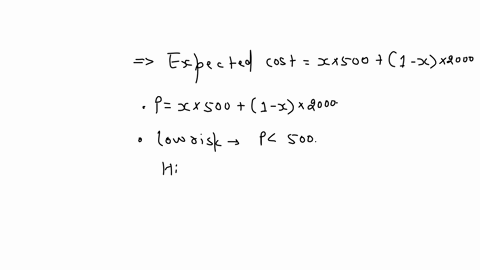 => Expected cost = x×500 + (1-x)×2000
• P = x×500 + (1-x)×2000
• Low risk → P< 500.
Hi